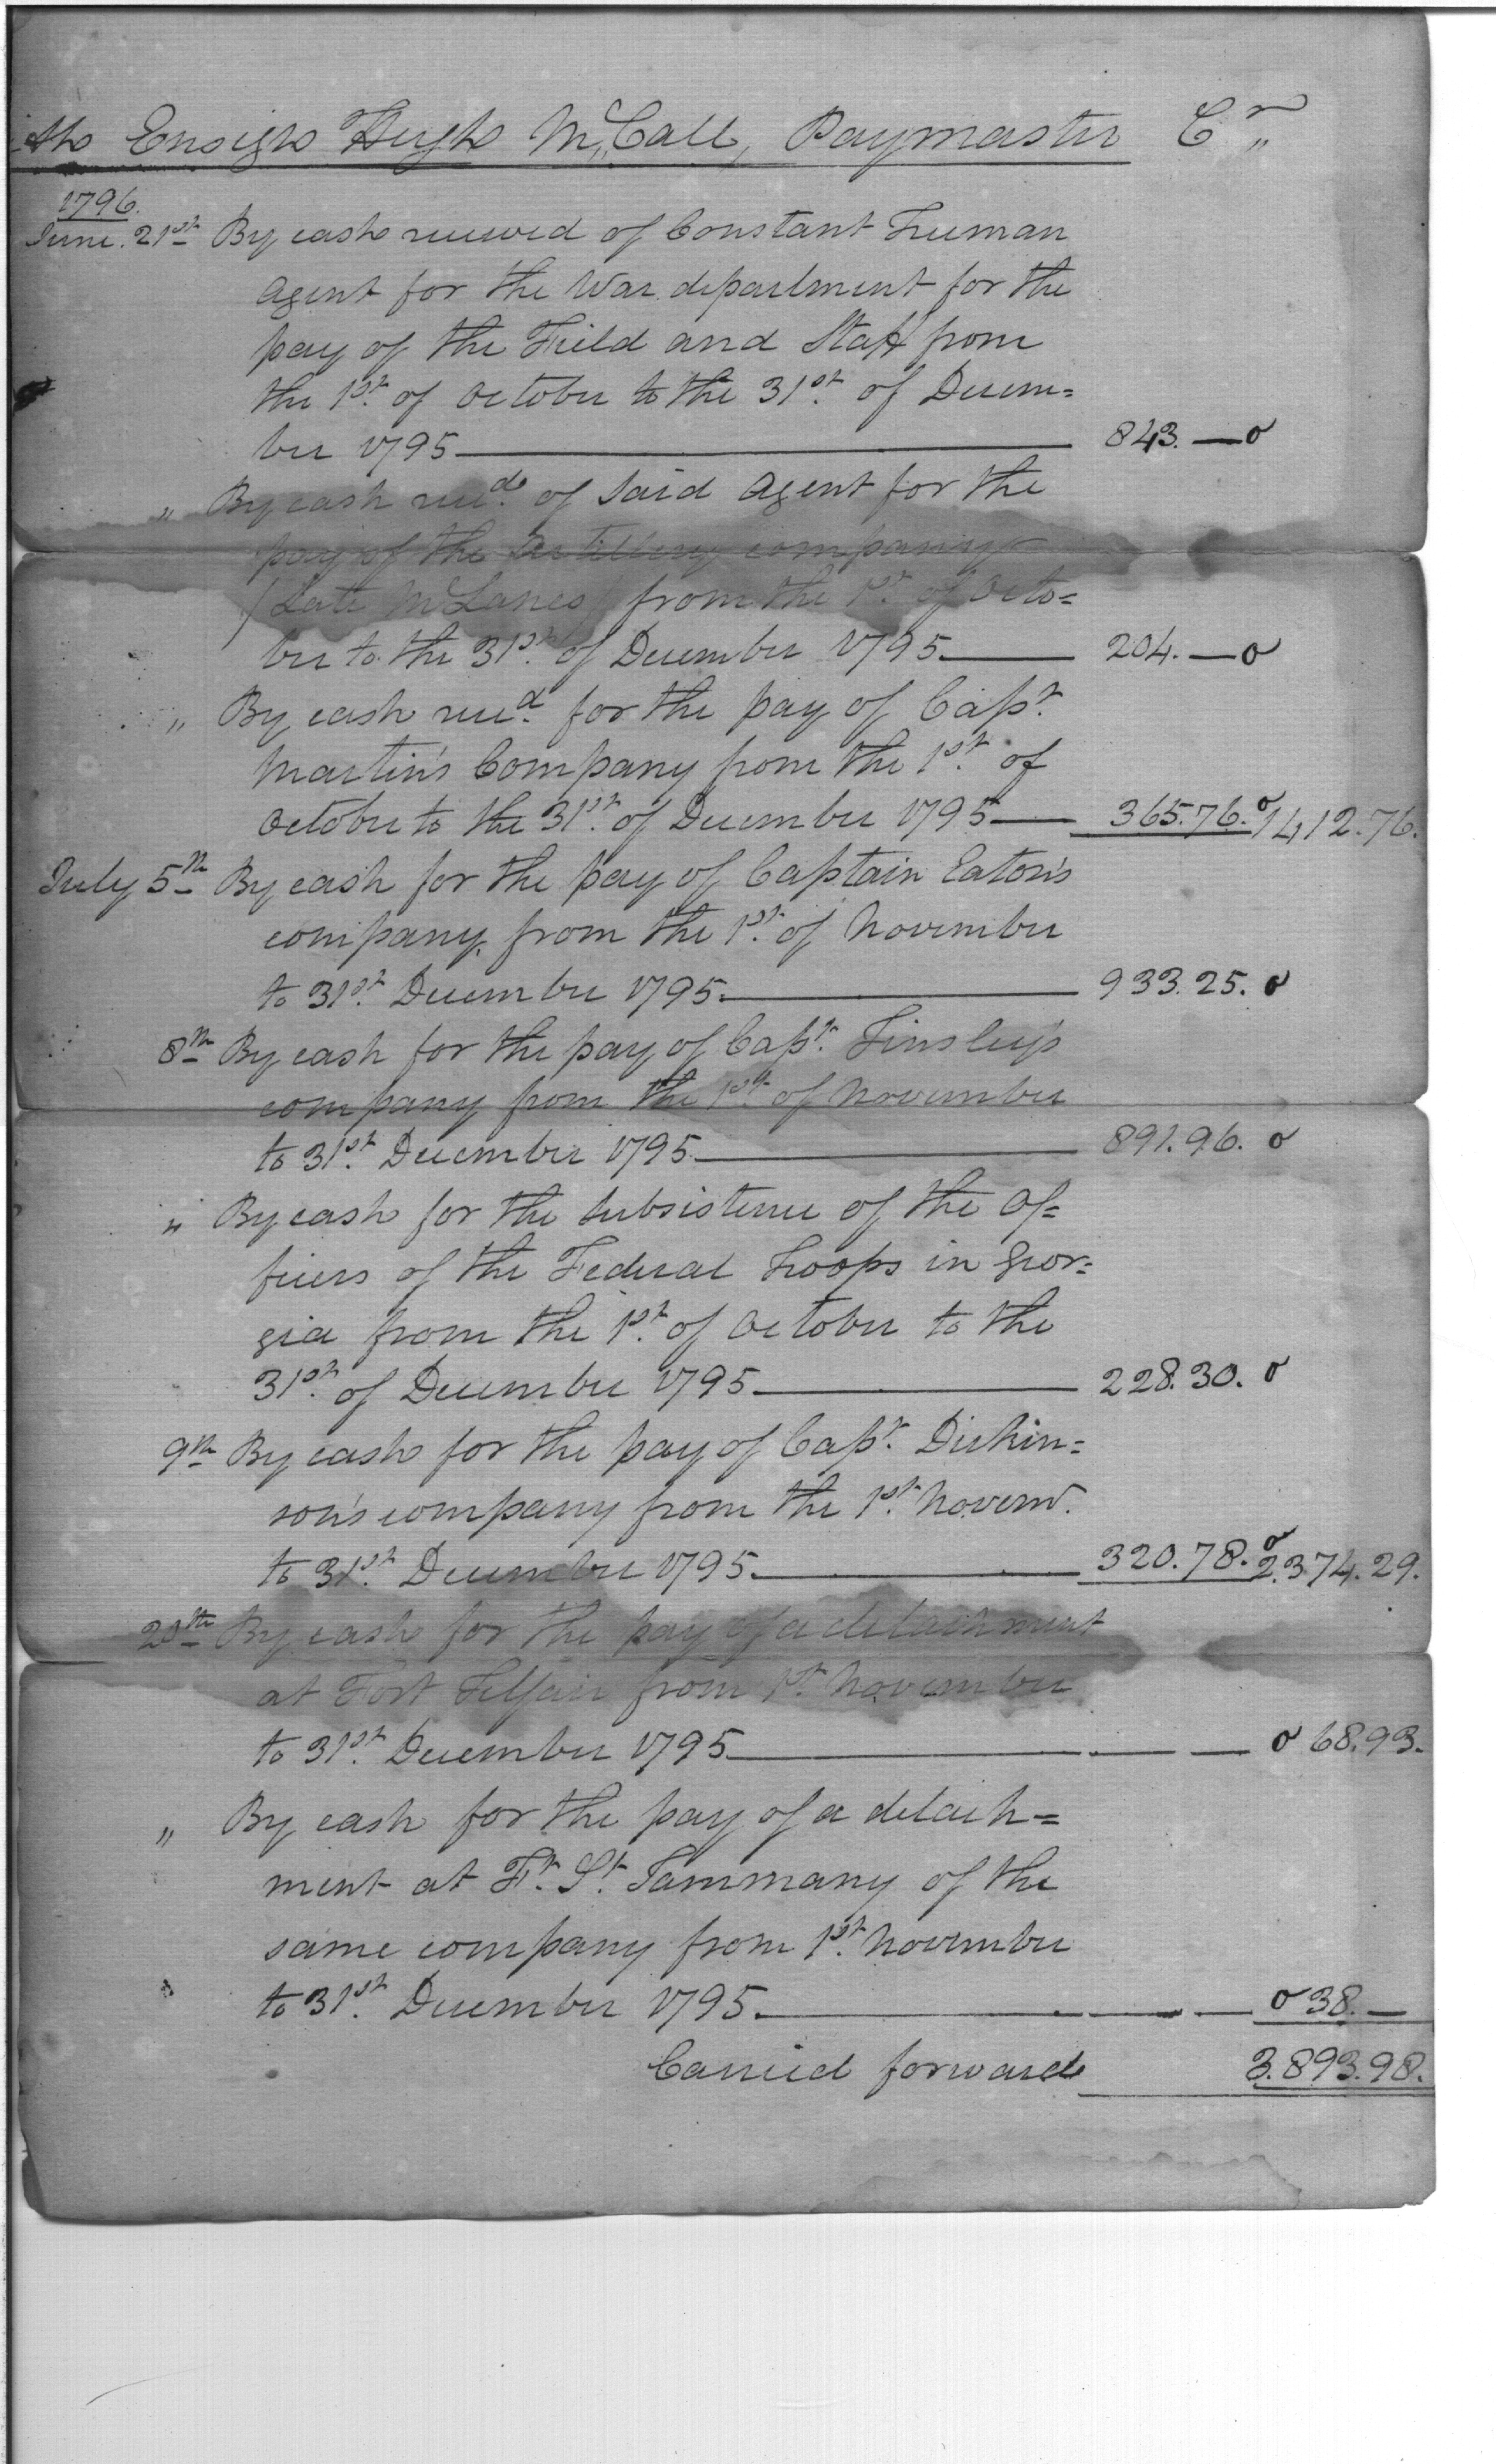 ith Ensign Hugh McCall, Paymaster Cr „
1796.
June. 21st By cash received of Constant Freeman
Agent for the War department for the
pay of the Field and Staff from
the 1st. of October to the 31st. of Decem=
ber 1795 843. — o
„ By cash recd. of said Agent for the
pay of the Artillery company
(Late McLanes) from the 1st. of Octo=
ber to the 31st. of December 1795 204. — o
„ By cash recd. for the pay of Capt.
Martin's Company from the 1st. of
October to the 31st. of December 1795 365.76. o 1412.76.
July 5th By cash for the pay of Captain Eaton's
company, from the 1st. of November
to 31st. December 1795. 933.25. o
8th By cash for the pay of Capt. Tinsley's
company from the 1st. of November
to 31st. December 1795 891.96. o
„ By cash for the subsistence of the Of=
ficers of the Federal Troops in Geor=
gia from the 1st. of October to the
31st. of December 1795 228.30. o
9th By cash for the pay of Capt. Dickin=
son's company from the 1st. Novemr.
to 31st. December 1795. 320.78. o 2.374.29.
20th By cash for the pay of a detachment
at Fort Telfair from 1st. November
to 31st. December 1795 o 68.93.
„ By cash for the pay of a detach=
ment at Ft. St. Tammany of the
same company from 1st. November
to 31st. December 1795. o 38. —
Carried forward 3.893.98.